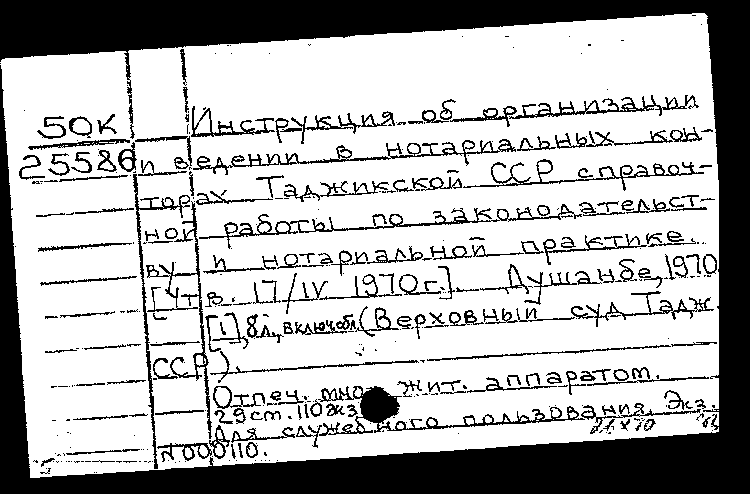 50к
25586
Инструкция об организации
и ведении в нотариальных кон-
торах Таджикской ССР справоч-
ной работы по законодательст-
ву и нотариальной практике.
[Утв. 17/IV 1970г.]. Душанбе, 1970
[1], 8л, включ. обл (Верховный суд Тадж.
ССР).
Отпеч. множит. аппаратом.
29см. 110экз
Для служебного пользования. Экз.
N000110.